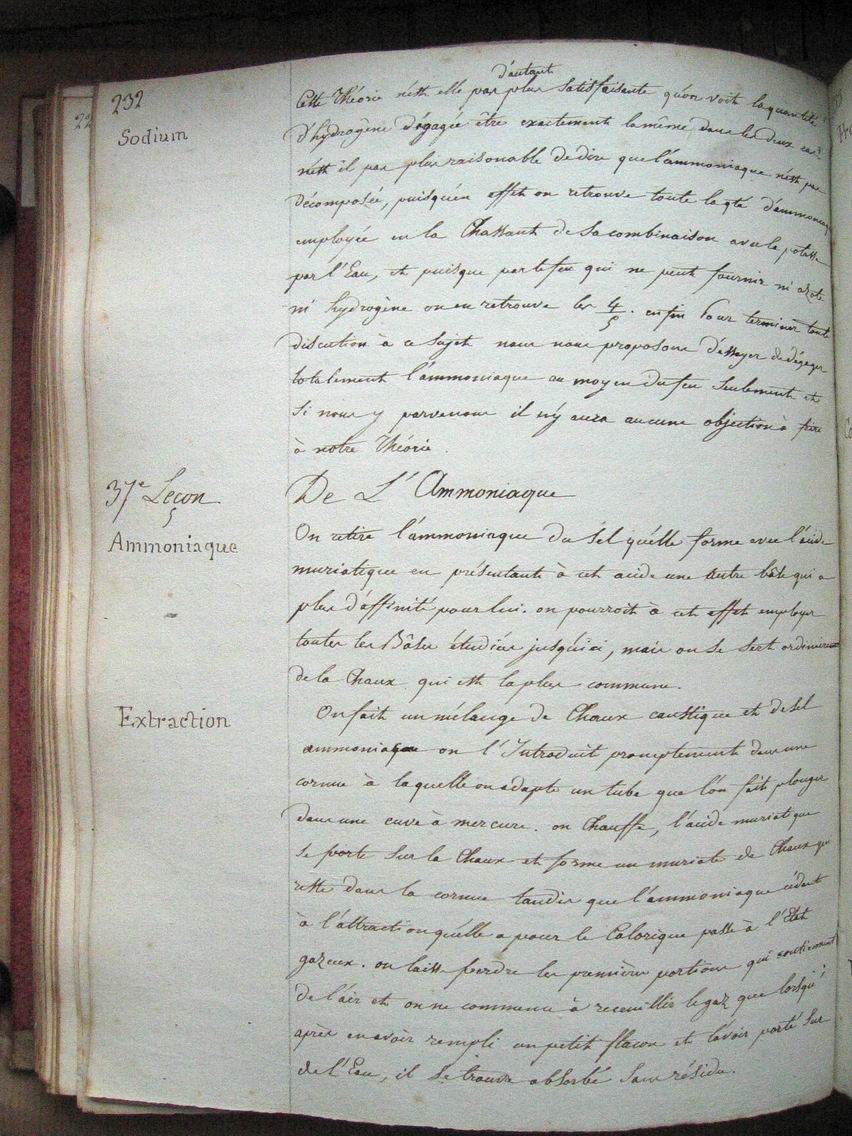 232
Sodium
d'autant
Cette Théorie n'est elle pas plus satisfaisante qu'on voit la quantité
d'hydrogène dégagée être exactement la même dans les deux cas.
n'est il pas plus raisonable de dire que l'ammoniaque n'est pas
décomposée, puisqu'en effet on retrouve toute la qté d'ammoniaq
employée en la Chassant de sa combinaison avec la potasse
par l'Eau, et puisque par le feu qui ne peut fournir ni azote
ni hydrogène on en retrouve les 4/5. enfin Pour terminer toute
discution à ce sujet nous nous proposons d'essayer de dégager
totalement l'ammoniaque au moyen du feu seulement et
si nous y parvenons il n'y aura aucune objection à faire
à notre Théorie.
37e Leçon
De L'Ammoniaque
Ammoniaque
On retire l'ammoniaque du sel qu'elle forme avec l'acide
muriatique en présentant à cet acide une autre bâse qui a
plus d'affinité pour lui. on pourroit à cet effet employer
toutes les Bâses étudiées jusqu'ici, mais on se sert ordinairement
de la Chaux qui est la plus commune.
Extraction
On fait un mélange de Chaux caustique et de sel
ammoniaque on l'Introduit promptement dans une
cornue à laquelle on adapte un tube que l'on fait plonger
dans une cuve à mercure. on Chauffe, l'acide muriatique
se porte sur la Chaux et forme un muriate de Chaux qui
reste dans la cornue tandis que l'ammoniaque cédant
à l'attraction qu'elle a pour le Calorique passe à l'Etat
gazeux. on laisse perdre les premières portions qui contiennent
de l'air et on ne commence à receuillir le gaz que lorsqu'
après en avoir rempli un petit flacon et l'avoir porté sur
de l'Eau, il se trouve absorbé sans résidu.